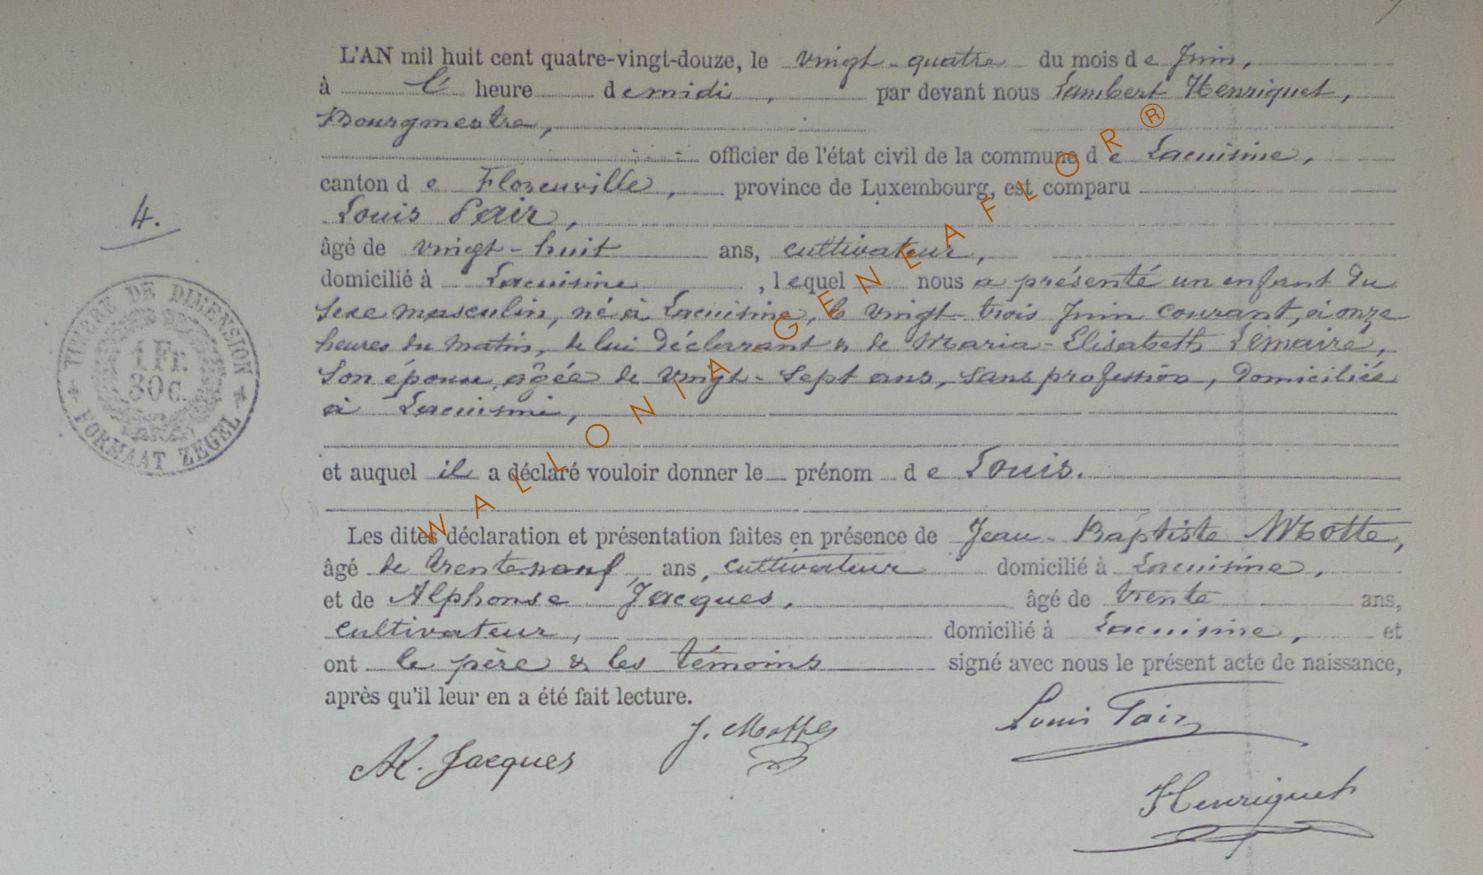 L'AN mil huit cent quatre-vingt-douze, le vingt-quatre du mois de Juin,
à l' heure demidi, par devant nous Lambert Henriquet,
Bourgmestre,
officier de l'état civil de la commune de Lacuisine,
canton de Florenville, province de Luxembourg, est comparu
Louis Pair,
4.
âgé de vingt-huit ans, cultivateur,
domicilié à Lacuisine, lequel nous a présenté un enfant du
sexe masculin, né à Lacuisine, le vingt-trois Juin courant, à onze
heures du matin, de lui déclarant & de Maria-Elisabeth Lemaire,
son épouse, agée de vingt-sept ans, sans profession, domiciliée
à Lacuisine,
TIMBRE DE DIMENSION
1 Fr.
30 c.
FORMAAT ZEGEL
et auquel il a déclaré vouloir donner le prénom de Louis.
Les dites déclaration et présentation faites en présence de Jean-Baptiste Motte,
âgé de trente ans, cultivateur domicilié à Lacuisine,
et de Alphonse Jacques, âgé de trente ans,
cultivateur, domicilié à Lacuisine, et
ont le père & les témoins signé avec nous le présent acte de naissance,
après qu'il leur en a été fait lecture.
Louis Pair
J. Motte
Al. Jacques
Henriquet
WALLONIA GENEAFLOR®